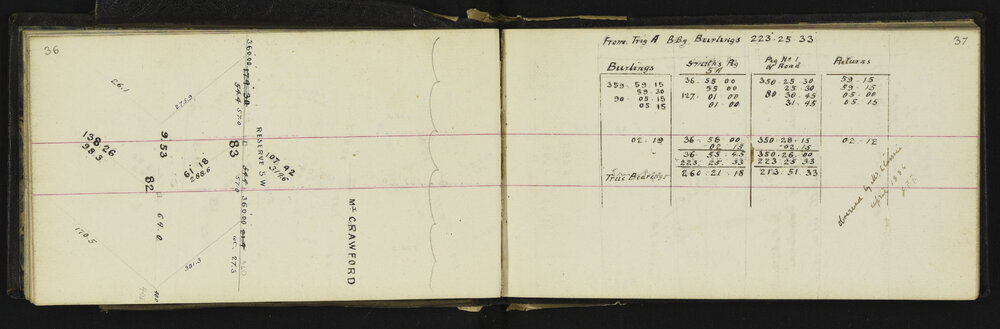 36
360.00
179.30
54.4
57.0
26.1
275.9
RESERVE SW
138.26
98.3
9.53
83
107.42
61 18
288.6
82
54.4
57.0
360.00
64.0
MT CRAWFORD
170.5
27.3
301.3
37
From Trig A B.Bg. Burlings 223.25.33
Burlings
Peg No 1
Returns
359 . 59 . 15 36 . 55 00 350 . 25 . 30 59 . 15
59 . 30 55 00 25 . 30 59 . 15
90 . 05 . 15 127 . 01 . 00 80 . 30 . 45 05 . 00
05 15 01 . 00 31 . 45 05 . 15
02 . 19 36 . 58 00 350 . 28 . 15 02 . 12
02 15 02 . 15
36 . 55 . 45 350 . 26 . 00
223 . 25 . 33 223 . 25 . 33
True Bearings 260 . 21 . 18 213 . 51 . 33